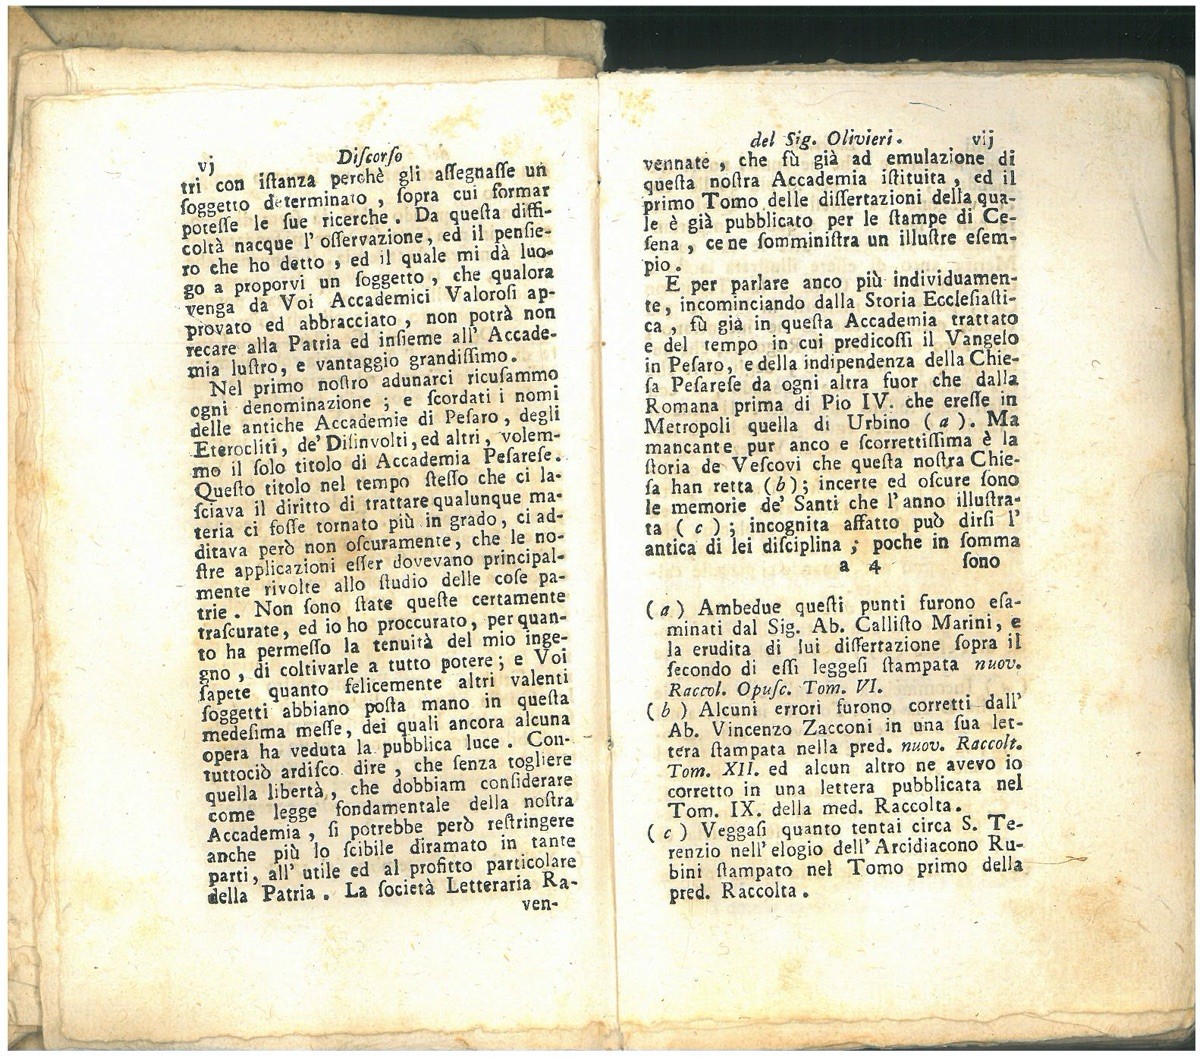 vj
Diſcorſo
tri con iſtanza perchè gli aſſegnaſſe un
ſoggetto determinato , ſopra cui formar
poteſſe le ſue ricerche . Da queſta diffi-
coltà nacque l' oſſervazione, ed il penſie-
ro che ho detto , ed il quale mi dà luo-
go a proporvi un ſoggetto , che qualora
venga da Voi Accademici Valoroſi ap-
provato ed abbracciato , non potrà non
recare alla Patria ed inſieme all' Accade-
mia luſtro, e vantaggio grandiſſimo .
Nel primo noſtro adunarci ricuſammo
ogni denominazione ; e ſcordati i nomi
delle antiche Accademie di Peſaro , degli
Eterocliti, de' Diſinvolti, ed altri, volem-
mo il ſolo titolo di Accademia Peſareſe.
Queſto titolo nel tempo ſteſſo che ci la-
ſciava il diritto di trattare qualunque ma-
teria ci foſſe tornato più in grado, ci ad-
ditava però non oſcuramente, che le no-
ſtre applicazioni eſſer dovevano principal-
mente rivolte allo ſtudio delle coſe pa-
trie . Non ſono ſtate queſte certamente
traſcurate, ed io ho proccurato, per quan-
to ha permeſſo la tenuità del mio inge-
gno , di coltivarle a tutto potere ; e Voi
ſapete quanto felicemente altri valenti
ſoggetti abbiano poſta mano in queſta
medeſima meſſe, dei quali ancora alcuna
opera ha veduta la pubblica luce . Con-
tuttociò ardiſco dire , che ſenza togliere
quella libertà , che dobbiam conſiderare
come legge fondamentale della noſtra
Accademia , ſi potrebbe però reſtringere
anche più lo ſcibile diramato in tante
parti, all' utile ed al profitto particolare
della Patria . La ſocietà Letteraria Ra-
ven-
del Sig. Olivieri . vij
vennate , che fù già ad emulazione di
queſta noſtra Accademia iſtituita , ed il
primo Tomo delle diſſertazioni della qua-
le è già pubblicato per le ſtampe di Ce-
ſena , ce ne ſomminiſtra un illuſtre eſem-
pio .
E per parlare anco più individuamen-
te , incominciando dalla Storia Eccleſiaſti-
ca , fù già in queſta Accademia trattato
e del tempo in cui predicoſſi il Vangelo
in Peſaro, e della indipendenza della Chie-
ſa Peſareſe da ogni altra fuor che dalla
Romana prima di Pio IV. che ereſſe in
Metropoli quella di Urbino (a). Ma
mancante pur anco e ſcorrettiſſima è la
ſtoria de Veſcovi che queſta noſtra Chie-
ſa han retta (b); incerte ed oſcure ſono
le memorie de' Santi che l'anno illuſtra-
ta (c); incognita affatto può dirſi l'
antica di lei diſciplina ; poche in ſomma
a 4 ſono
(a) Ambedue queſti punti furono eſa-
minati dal Sig. Ab. Calliſto Marini, e
la erudita di lui diſſertazione ſopra il
ſecondo di eſſi leggeſi ſtampata nuov.
Raccol. Opuſc. Tom. VI.
(b) Alcuni errori furono corretti dall'
Ab. Vincenzo Zacconi in una ſua let-
tera ſtampata nella pred. nuov. Raccolt.
Tom. XII. ed alcun altro ne avevo io
corretto in una lettera pubblicata nel
Tom. IX. della med. Raccolta .
(c) Veggaſi quanto tentai circa S. Te-
renzio nell' elogio dell' Arcidiacono Ru-
bini ſtampato nel Tomo primo della
pred. Raccolta .